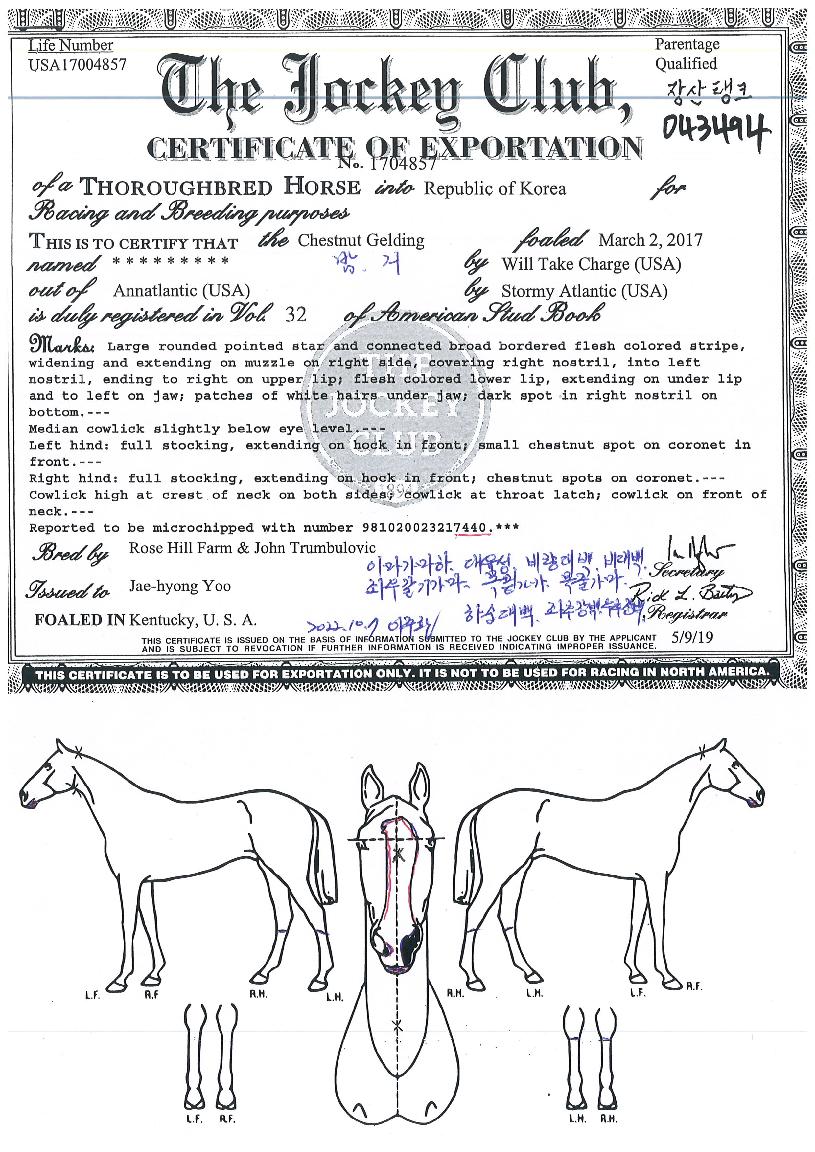 Life Number
USA17004857
Parentage
Qualified
장산탱크
043494
The Jockey Club,
CERTIFICATE OF EXPORTATION
No. 1704857
of a THOROUGHBRED HORSE into Republic of Korea for
Racing and Breeding purposes
THIS IS TO CERTIFY THAT the Chestnut Gelding foaled March 2, 2017
named * * * * * * * * * 밤. 거 by Will Take Charge (USA)
out of Annatlantic (USA) by Stormy Atlantic (USA)
is duly registered in Vol. 32 of American Stud Book
Marks: Large rounded pointed star and connected broad bordered flesh colored stripe,
widening and extending on muzzle on right side, covering right nostril, into left
nostril, ending to right on upper lip; flesh colored lower lip, extending on under lip
and to left on jaw; patches of white hairs under jaw; dark spot in right nostril on
bottom.---
Median cowlick slightly below eye level.---
Left hind: full stocking, extending on hock in front; small chestnut spot on coronet in
front.---
Right hind: full stocking, extending on hock in front; chestnut spots on coronet.---
Cowlick high at crest of neck on both sides; cowlick at throat latch; cowlick on front of
neck.---
Reported to be microchipped with number 981020023217440.***
THE
JOCKEY
CLUB
1894
Bred by Rose Hill Farm & John Trumbulovic
Secretary
Issued to Jae-hyong Yoo
Rick L. Bailey
Registrar
FOALED IN Kentucky, U. S. A.
2022.10.7
5/9/19
THIS CERTIFICATE IS ISSUED ON THE BASIS OF INFORMATION SUBMITTED TO THE JOCKEY CLUB BY THE APPLICANT
AND IS SUBJECT TO REVOCATION IF FURTHER INFORMATION IS RECEIVED INDICATING IMPROPER ISSUANCE.
THIS CERTIFICATE IS TO BE USED FOR EXPORTATION ONLY. IT IS NOT TO BE USED FOR RACING IN NORTH AMERICA.
L.F. R.F R.H. L.H. R.H. L.H. L.F. R.F.
L.F. R.F. L.H. R.H.